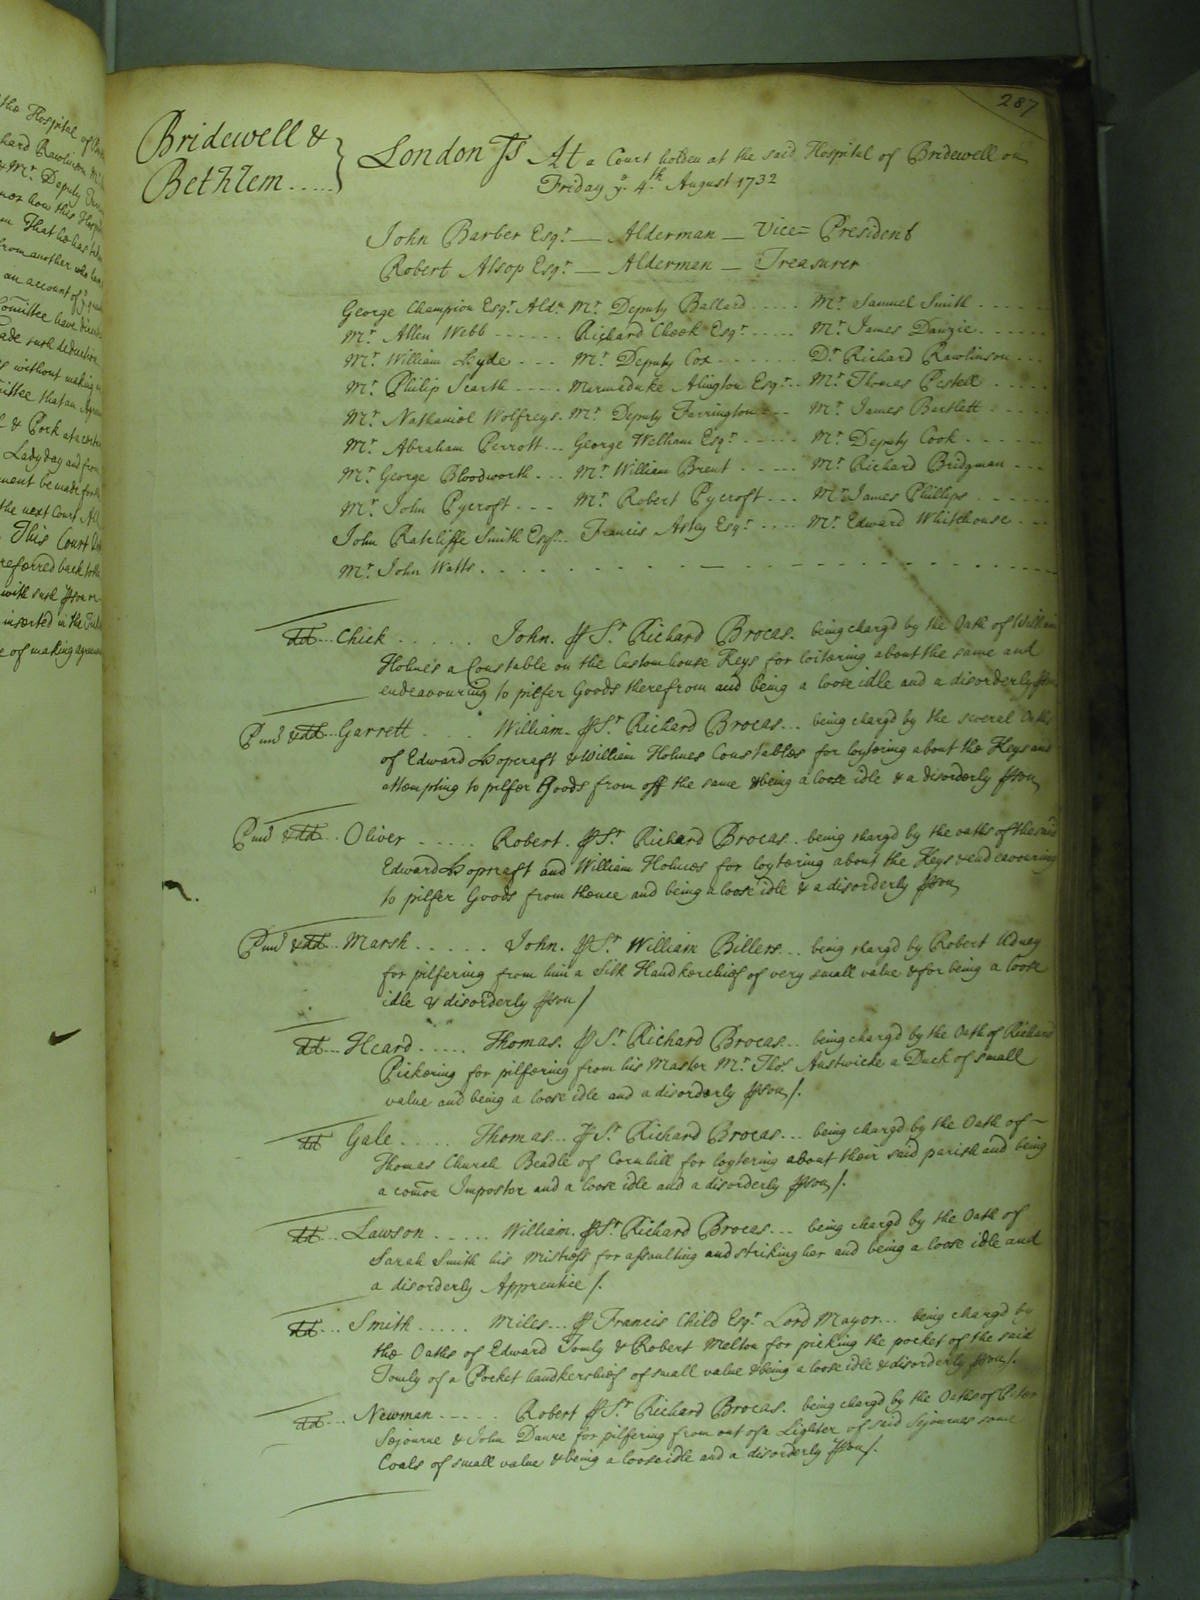 the Hospital of
hard Rawlinson Mr
Mr. Deputy
how this
That he has
from another who
an account of ye
Comittee have
made such deduction
without making
mittee that an
& Pork at
Lady day and from
ment be made for
the next Court
This Court
referred back to the
with such pson
inserted in the
of making
287
Bridewell &
Bethlem .....
London Ss At a Court holden at the said Hospital of Bridewell on
Friday ye. 4th. August 1732
John Barber Esqr. — Alderman — Vice= President
Robert Alsop Esqr. — Alderman — Treasurer
George Champion Esqr. Aldn. Mr. Deputy Ballard ..... Mr. Samuel Smith .....
Mr. Allen Webb ...... Richard Cheek Esqr. ..... Mr. James Danzie .....
Mr. William Hyde ... Mr. Deputy Cox ...... Dr. Richard Rawlinson ...
Mr. Philip Scarth ..... Marmaduke Alington Esqr. .. Mr. Thomas Pestell .....
Mr. Nathaniel Wolfreys. Mr. Deputy Farrington ... Mr. James Bartlett .....
Mr. Abraham Perrott ... George Welham Esqr. ..... Mr. Deputy Cook ......
Mr. George Bloodworth ... Mr. William Brent ..... Mr. Richard Bridgman ...
Mr. John Pycroft ... Mr. Robert Pycroft ... Mr. James Phillips ......
John Ratcliffe Smith Esqr... Francis Astey Esqr. .... Mr. Edward Whitehouse ...
Mr. John Watts
dd ... Chick ..... John. P Sr. Richard Brocas. being charg'd by the Oath of William
Holmes a Constable on the Customhouse Keys for loitering about the same and
endeavouring to pilfer Goods therefrom and being a loose idle and a disorderly pson
Pun'd & dd ... Garrett ... William. P Sr. Richard Brocas... being charg'd by the several Oaths
of Edward Hopcraft & William Holmes Constables for loytering about the Keys and
attempting to pilfer Goods from off the same & being a loose idle & a disorderly pson
Pun'd & dd ... Oliver ..... Robert. P Sr. Richard Brocas.. being charg'd by the oaths of the said
Edward Hopcraft and William Holmes for loytering about the Keys & endeavouring
to pilfer Goods from thence and being a loose idle & a disorderly pson
Pun'd & dd ... Marsh ..... John. P Sr. William Billers... being charg'd by Robert Adney
for pilfering from him a Silk Handkerchief of very small value & for being a loose
idle & disorderly pson /
dd ... Heard ..... Thomas. P Sr. Richard Brocas... being charg'd by the Oath of Richard
Pickering for pilfering from his Master Mr. Thos. Austwicke a Duck of small
value and being a loose idle and a disorderly pson /.
dd Gale ..... Thomas... P Sr. Richard Brocas... being charg'd by the Oath of
Thomas Church Beadle of Cornhill for loytering about their said parish and being
a comon Impostor and a loose idle and a disorderly pson /.
dd ... Lawson ..... William. P Sr. Richard Brocas... being charg'd by the Oath of
Sarah Smith his Mistress for assaulting and striking her and being a loose idle and
a disorderly Apprentice /.
dd ... Smith ..... Miles... P Francis Child Esqr. Lord Mayor... being charg'd by
the Oaths of Edward Towly & Robert Melton for picking the pocket of the said
Towly of a Pocket handkerchief of small value & being a loose idle & disorderly pson /.
dd ... Newman ..... Robert P Sr. Richard Brocas. being charg'd by the Oaths of Peter
Sejourne & John Daure for pilfering from out of a Lighter of said Sejournes some
Coals of small value & being a loose idle and a disorderly pson /.